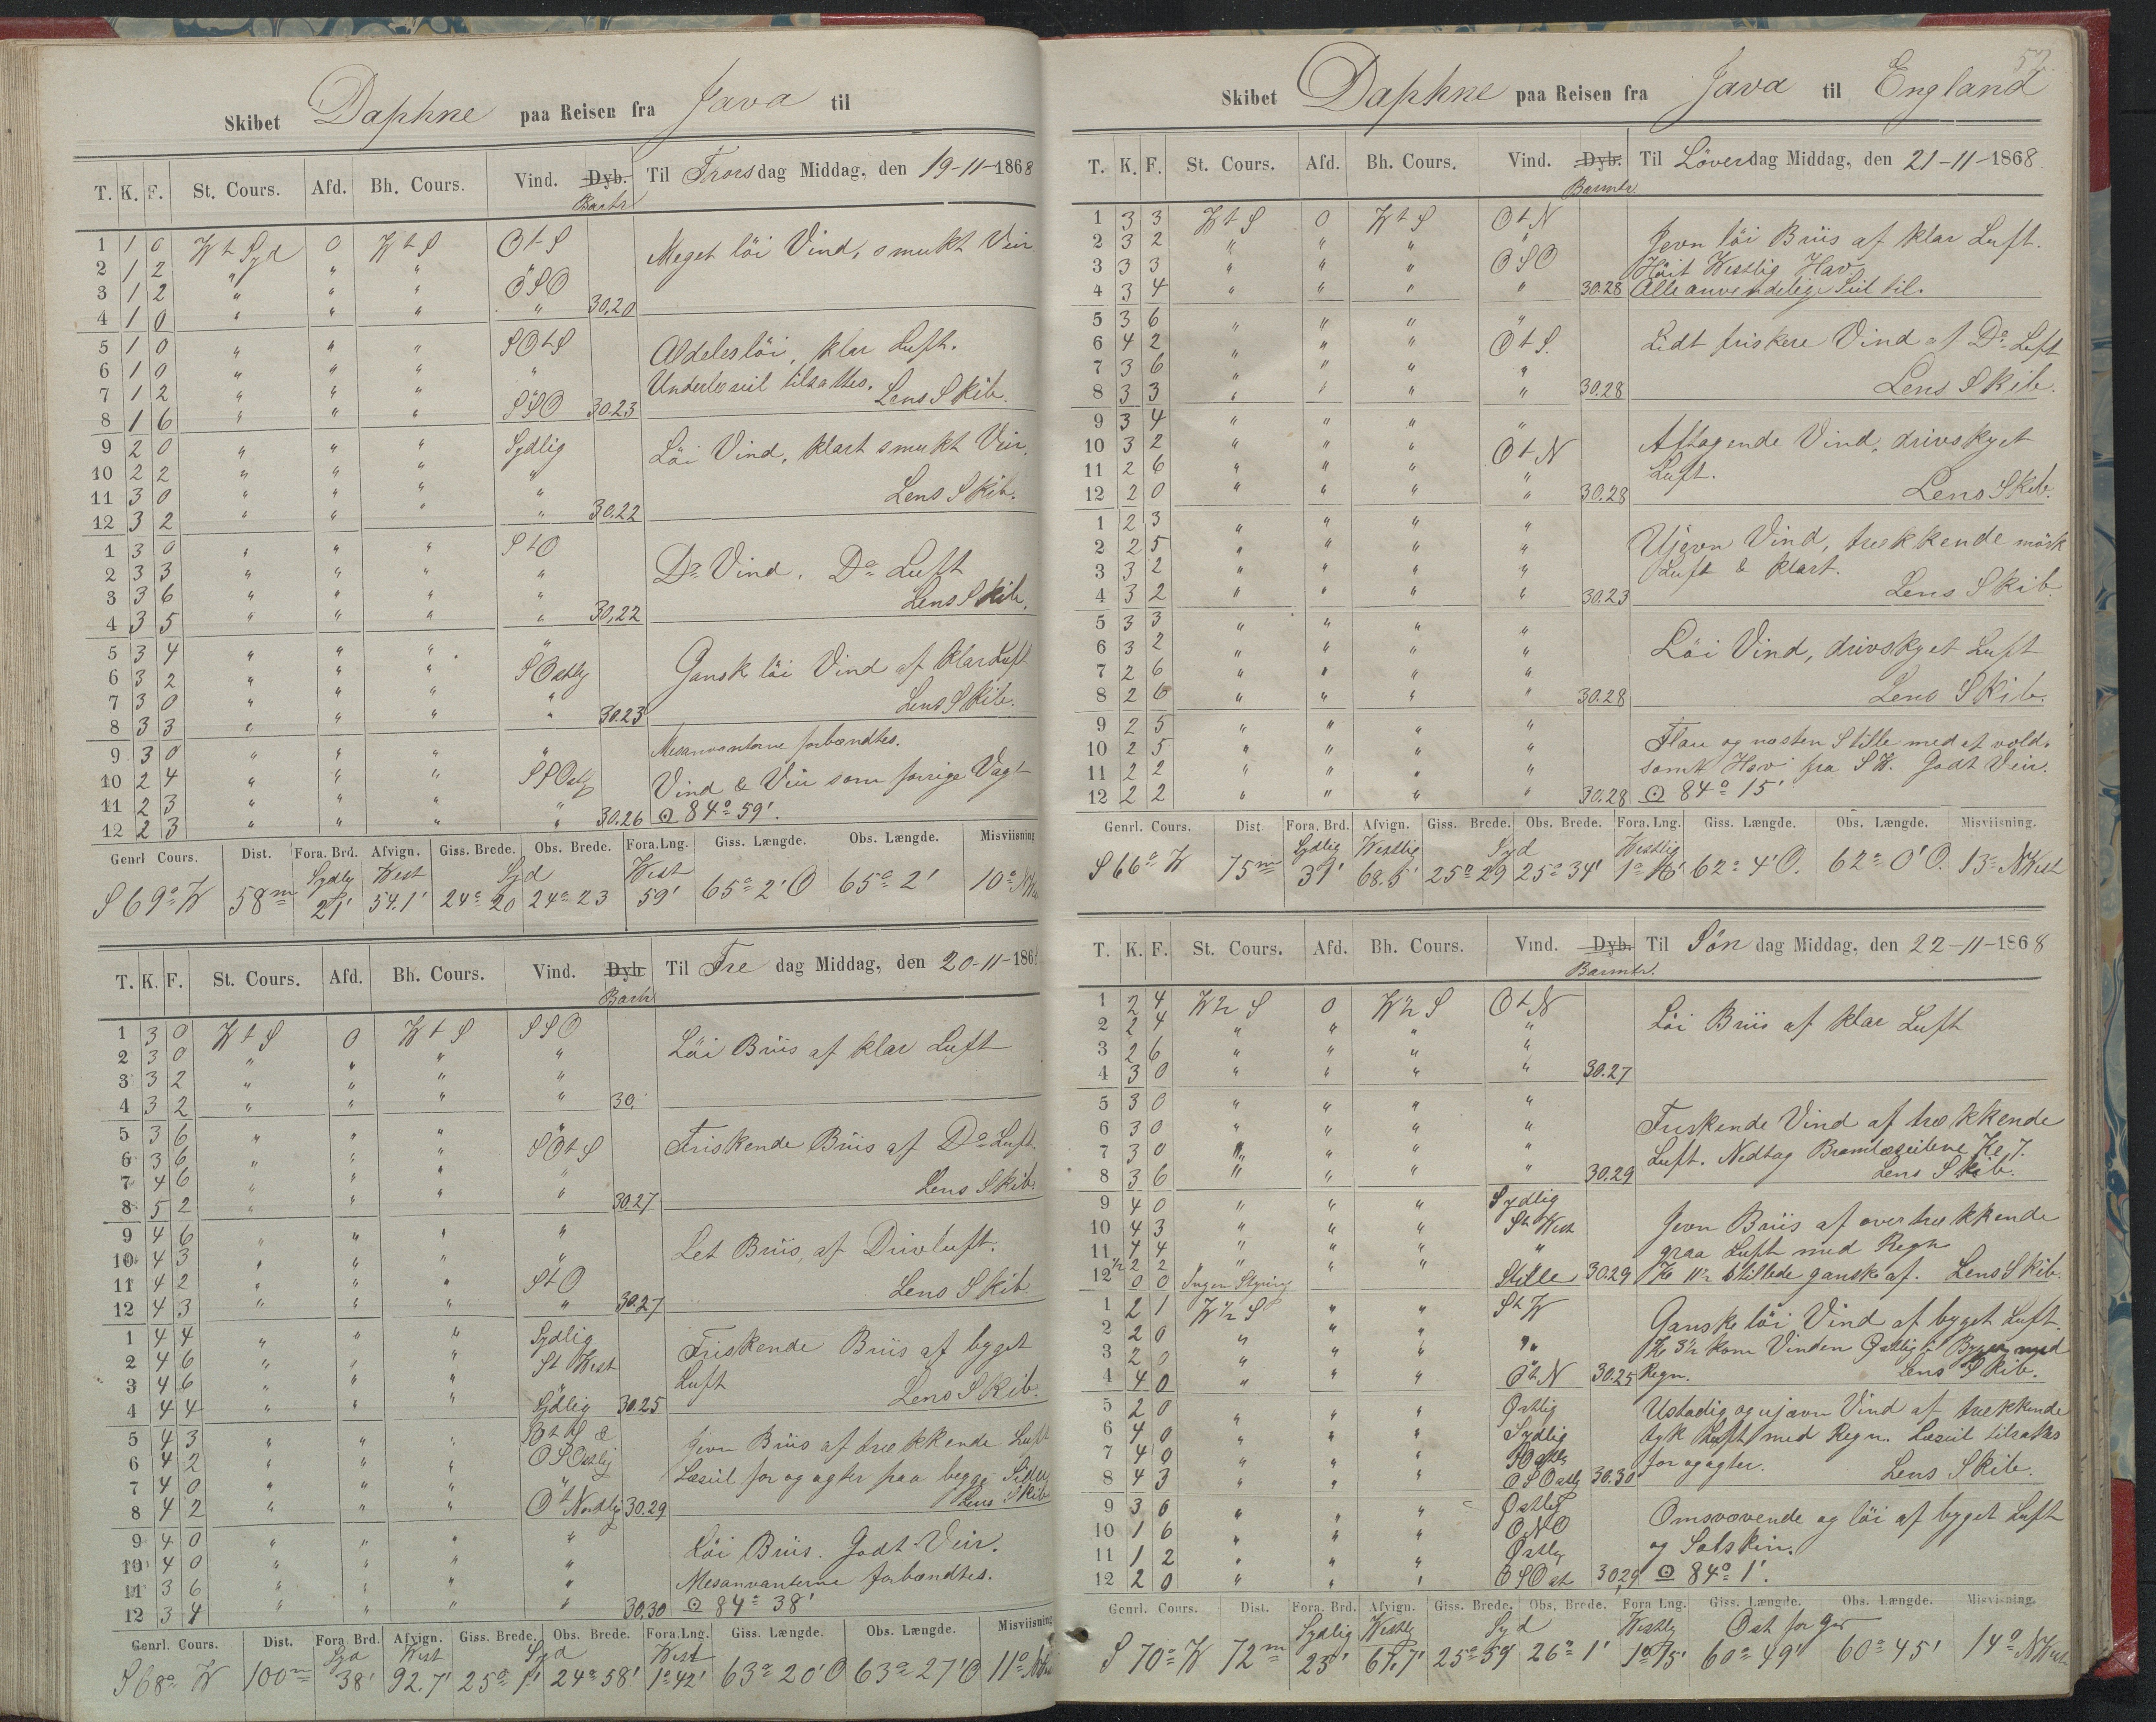 Skibet Daphne paa Reisen fra Java til
T. K. F. St. Cours. Afd. Bh. Cours. Vind. Dyb. Til Torsdag Middag, den 19-11-1868
Bartr
1 1 0 W t Syd 0 W t S O t S Meget löi Vind, smukt Veir
2 1 2 " " " "
3 1 2 " " " OSO
4 1 0 " " " " 30.20
5 1 0 " " " SO t S Aldeles löi, klar Luft.
6 1 0 " " " " Underlæseil tilsattes.
7 1 2 " " " " Lens Skib.
8 1 6 " " " SSO 30.23
9 2 0 " " " Sydlig Löi Vind, klart smukt Veir.
10 2 2 " " " "
11 3 0 " " " " Lens Skib.
12 3 2 " " " " 30.22
1 3 0 " " " S t O
2 3 3 " " " " Do Vind. Do Luft
3 3 6 " " " " Lens Skib.
4 3 5 " " " " 30,22
5 3 4 " " " "
6 3 2 " " " SOstlig Gansk löi Vind af klar Luft
7 3 0 " " " " Lens Skib.
8 3 3 " " " " 30.23
9 3 0 " " " " Mesanvanterne forbandtes.
10 2 4 " " " SSOstlig Vind & Veir som forrige Vagt
11 2 3 " " " "
12 2 3 " " " " 30.26 ⊙ 84° 59'.
Genrl Cours. Dist. Fora. Brd. Afvign. Giss. Brede. Obs. Brede. Fora.Lng. Giss. Længde. Obs. Længde. Misviisning
Sydlig West Syd West
S 69° W 58m 21' 54.1' 24° 20 24° 23 59' 65° 2' O 65° 2' 10°
T. K. F. St. Cours. Afd. Bh. Cours. Vind. Dyb Til Fre dag Middag, den 20-11-186
Bartr.
1 3 0 W t S 0 W t S SSO
2 3 0 " " " " Löi Briis af klar Luft
3 3 2 " " " "
4 3 2 " " " " 30.
5 3 6 " " " "
6 3 6 " " " SO t S Friskende Briis af Do Luft.
7 4 6 " " " " Lens Skib.
8 5 2 " " " " 30.27
9 4 6 " " " "
10 4 3 " " " " Let Briis, af Drivluft.
11 4 2 " " " S t O Lens Skib.
12 4 3 " " " " 30.27
1 4 4 " " " Sydlig Friskende Briis af byget
2 4 6 " " " St West Luft
3 4 6 " " " " Lens Skib.
4 4 4 " " " Sydlig 30.25
5 4 3 " " " SO t S & Jevn Briis af trækkende Luft
6 4 2 " " " OSOstlig Læseil for og agter paa begge Sider
7 4 0 " " " " Lens Skib
8 4 2 " " " O t Nordlig 30.29
9 4 0 " " " " Löi Briis. Godt Veir.
10 4 0 " " " "
11 3 6 " " " " Mesanvanterne forbandtes.
12 3 4 " " " " 30.30 ⊙ 84° 38'
Genrl. Cours. Dist. Fora Brd. Afvign. Giss. Brede. Obs. Brede. Fora.Lng. Giss. Længde. Obs. Længde. Misviisning
Syd West Syd West
S 68° W 100m 38' 92.7' 25° 1' 24° 58' 1° 42' 63° 20' O 63° 27' O 11°
52
Skibet Daphne paa Reisen fra Java til England
T. K. F. St. Cours. Afd. Bh. Cours. Vind. Dyb. Til Löverdag Middag, den 21-11-1868.
Barmtr.
1 3 3 W t S 0 W t S O t N
2 3 2 " " " " Jevn löi Briis af klar Luft.
3 3 3 " " " OSO Höit Westlig Hav
4 3 4 " " " " 30.28 Alle anvendelige Seil til.
5 3 6 " " " "
6 4 2 " " " O t S. Lidt friskere Vind af Do Luft
7 3 6 " " " "
8 3 3 " " " " 30.28 Lens Skib.
9 3 4 " " " "
10 3 2 " " " O t N Aftagende Vind, drivskyet
11 2 6 " " " " Luft.
12 2 0 " " " " 30.28 Lens Skib.
1 2 3 " " " "
2 2 5 " " " " Ujevn Vind, trækkende mörk
3 3 2 " " " " Luft & klart.
4 3 2 " " " " 30.23 Lens Skib.
5 3 3 " " " "
6 3 2 " " " " Löi Vind, drivskyet Luft
7 2 6 " " " "
8 2 6 " " " " 30.28 Lens Skib.
9 2 5 " " " "
10 2 5 " " " " Flau og næsten Stille med et vold-
11 2 2 " " " " somt Hav fra SW. Godt Veir.
12 2 2 " " " " 30.28 ⊙ 84° 15'
Genrl. Cours. Dist Fora. Brd. Afvign. Giss. Brede. Obs. Brede. Fora.Lng. Giss. Længde. Obs. Længde. Misviisning.
Sydlig Westlig Syd Westlig
S 66° W 75m 31' 68.5' 25° 29 25° 34' 1° 16' 62° 4' O. 62° 0' O. 13° NWest
T. K. F. St. Cours. Afd. Bh. Cours. Vind. Dyb. Til Sön dag Middag, den 22-11-1868
Barmtr.
1 2 4 W ½ S 0 W ½ S O t N
2 2 4 " " " " Löi Briis af klar Luft
3 2 6 " " " "
4 3 0 " " " " 30.27
5 3 0 " " " "
6 3 0 " " " " Friskende Vind af trækkende
7 3 0 " " " " Luft. Nedtog Bramlæseilene Kl 7.
8 3 6 " " " " 30.29 Lens Skib.
9 4 0 " " " Sydlig
10 4 3 " " " St West Jevn Briis af overtrækkende
11 4 4 " " " " graa Luft med Regn
½ 2 2 " " "
12 0 0 Ingen Styring Stille 30.29 Kl 11½ stillede ganske af. Lens Skib.
1 2 1 W ½ S " " S t W Ganske löi Vind af byget Luft.
2 2 0 " " " "
3 2 0 " " " Kl 3½ kom Vinden Östlig i Byger med
4 4 0 " " " O t N 30.25 Regn. Lens Skib.
5 2 0 " " " Östlig Ustadig og ujævn Vind af trækkende
6 4 0 " " " Sydlig tyk Luft med Regn. Læseil tilsattes
7 4 0 " " " SOstlig for og agter.
8 4 3 " " " OSOstlig 30.30 Lens Skib.
9 3 6 " " " Östlig
10 1 6 " " " ONO Omsvævende og löi af byget Luft
11 1 2 " " " Östlig og Solskin.
12 2 0 " " " OSOst 30,29 ⊙ 84° 1'.
Genrl. Cours. Dist. Fora. Brd. Afvign. Giss. Brede. Obs. Brede. Fora Lng. Giss. Længde. Obs. Længde. Misviisning.
Sydlig Westlig Syd Westlig Ost for Gr
S 70° W 72m 25' 67.7' 25° 59 26° 1' 1° 15' 60° 49' 60° 45' 14° NWest